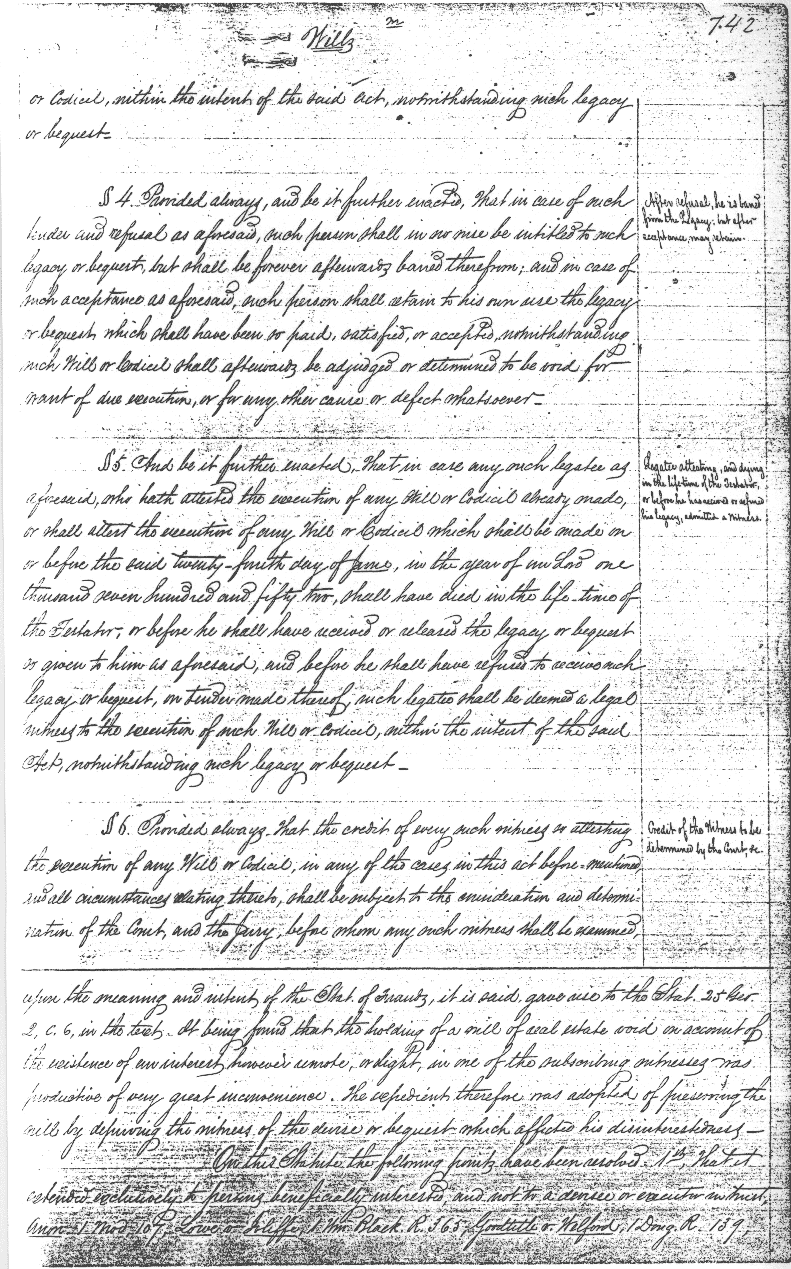 m
Wills
742
or Codicil, within the intent of the said Act, notwithstanding such legacy
or bequest_
§ 4. Provided always, and be it further enacted, That in case of such
After refusal, he is bared
from the Legacy; but after
acceptance, may retain.
tender and refusal as aforesaid, such person shall in no wise be intitled to such
legacy or bequest, but shall be forever afterwards bared therefrom; and in case of
such acceptance as aforesaid, such person shall retain to his own use the legacy
or bequest which shall have been so paid, satisfied, or accepted, notwithstanding
such Will or Codicil shall afterwards be adjudged or determined to be void for
want of due execution, or for any other cause or defect whatsoever_
§ 5. And be it further enacted, That in case any such legatee as
Legatee attesting, and dying
in the lifetime of the Testator,
or before he has received or refused
his legacy, admitted a Witness.
aforesaid, who hath attested the execution of any Will or Codicil already made,
or shall attest the execution of any Will or Codicil which shall be made on
or before the said twenty-fourth day of June, in the year of our Lord one
thousand seven hundred and fifty two, shall have died in the life-time of
the Testator, or before he shall have received or released the legacy or bequest
so given to him as aforesaid, and before he shall have refused to receive such
legacy or bequest, on tender made thereof, such legatee shall be deemed a legal
witness to the execution of such Will or Codicil, within the intent of the said
Act, notwithstanding such legacy or bequest_
§ 6. Provided always_ That the credit of every such witness so attesting
Credit of the Witness to be
determined by the Court, &c.
the execution of any Will or Codicil, in any of the cases in this act before-mentioned
and all circumstances relating thereto, shall be subject to the consideration and determi-
nation of the Court, and the Jury, before whom any such witness shall be examined,
upon the meaning and intent of the Stat. of Frauds, it is said, gave rise to the Stat. 25 Geo
2, c. 6, in the text. It being found that the holding of a will of real estate void on account of
the existence of an interest however remote, or slight, in one of the subscribing witnesses was
productive of very great inconvenience. The expedient therefore was adopted of preserving the
will by depriving the witness of the devise or bequest which affected his disinterestedness_
On this Statute the following points have been resolved. 1st, That it
extended exclusively to persons beneficially interested, and not to a devisee or executor in trust,
Anon. 1 Mod. 107, Lowe v. Joliffe, 1 Wm. Black. R. 365, Goodtitle v. Welford, 1 Doug. R. 139,